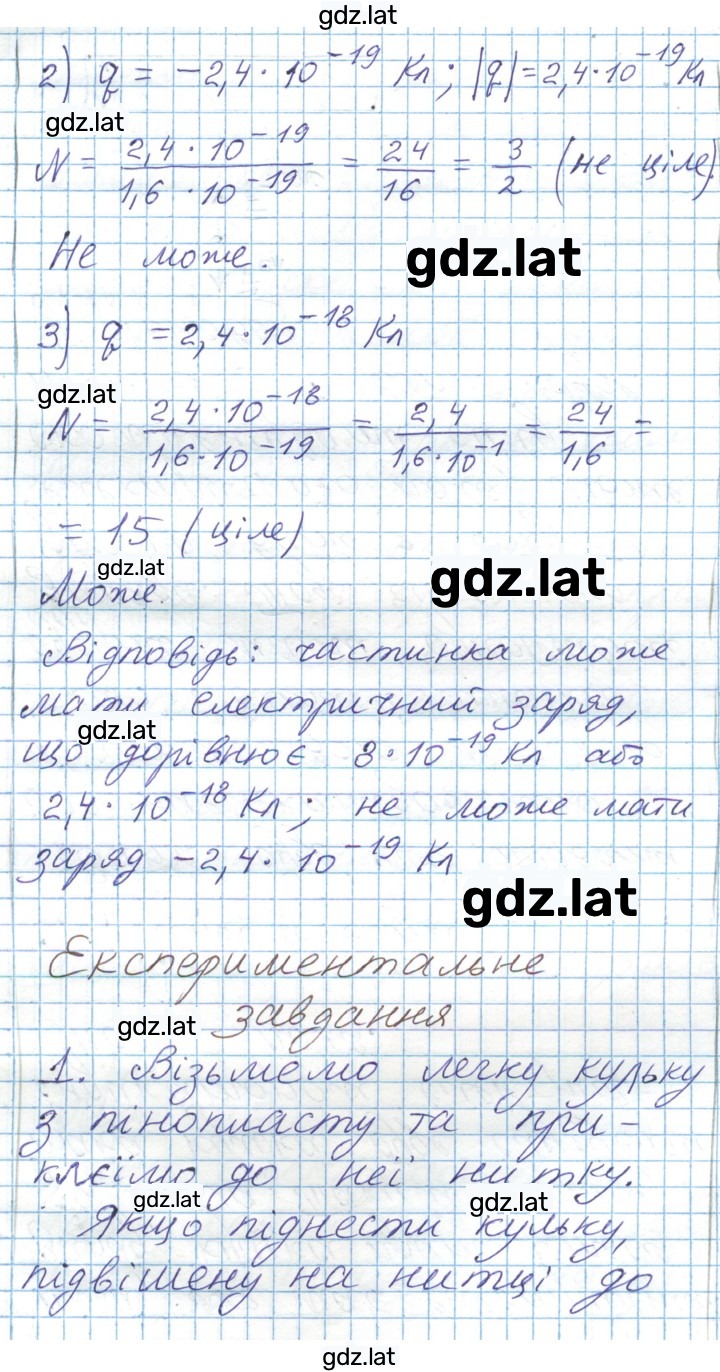 gdz.lat
2) q = -2,4·10⁻¹⁹ Кл; |q|=2,4·10⁻¹⁹ Кл
gdz.lat
N = 2,4·10⁻¹⁹ / 1,6·10⁻¹⁹ = 24/16 = 3/2 (не ціле).
Не може.
gdz.lat
3) q = 2,4·10⁻¹⁸ Кл
gdz.lat
N = 2,4·10⁻¹⁸ / 1,6·10⁻¹⁹ = 2,4 / 1,6·10⁻¹ = 24/1,6 =
= 15 (ціле)
gdz.lat
Може.
gdz.lat
Відповідь: частинка може
мати електричний заряд,
gdz.lat
що дорівнює 8·10⁻¹⁹ Кл або
2,4·10⁻¹⁸ Кл; не може мати
заряд -2,4·10⁻¹⁹ Кл
gdz.lat
Експериментальне
завдання
gdz.lat
1. Візьмемо легку кульку
з пінопласту та при-
клєїмо до неї нитку.
gdz.lat
gdz.lat
Якщо піднести кульку,
підвішену на нитці до
gdz.lat